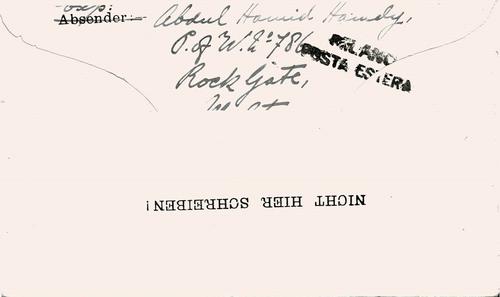 Absender:- Abdul Hamid Hamdy,
P. of W. Nº 786
Rock Gate,
MILANO
POSTA ESTERA
NICHT HIER SCHREIBEN!